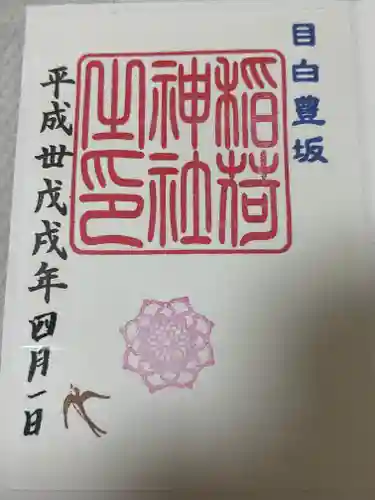 目白豊坂
稲荷
神社
之印
平成丗戊戌年四月一日